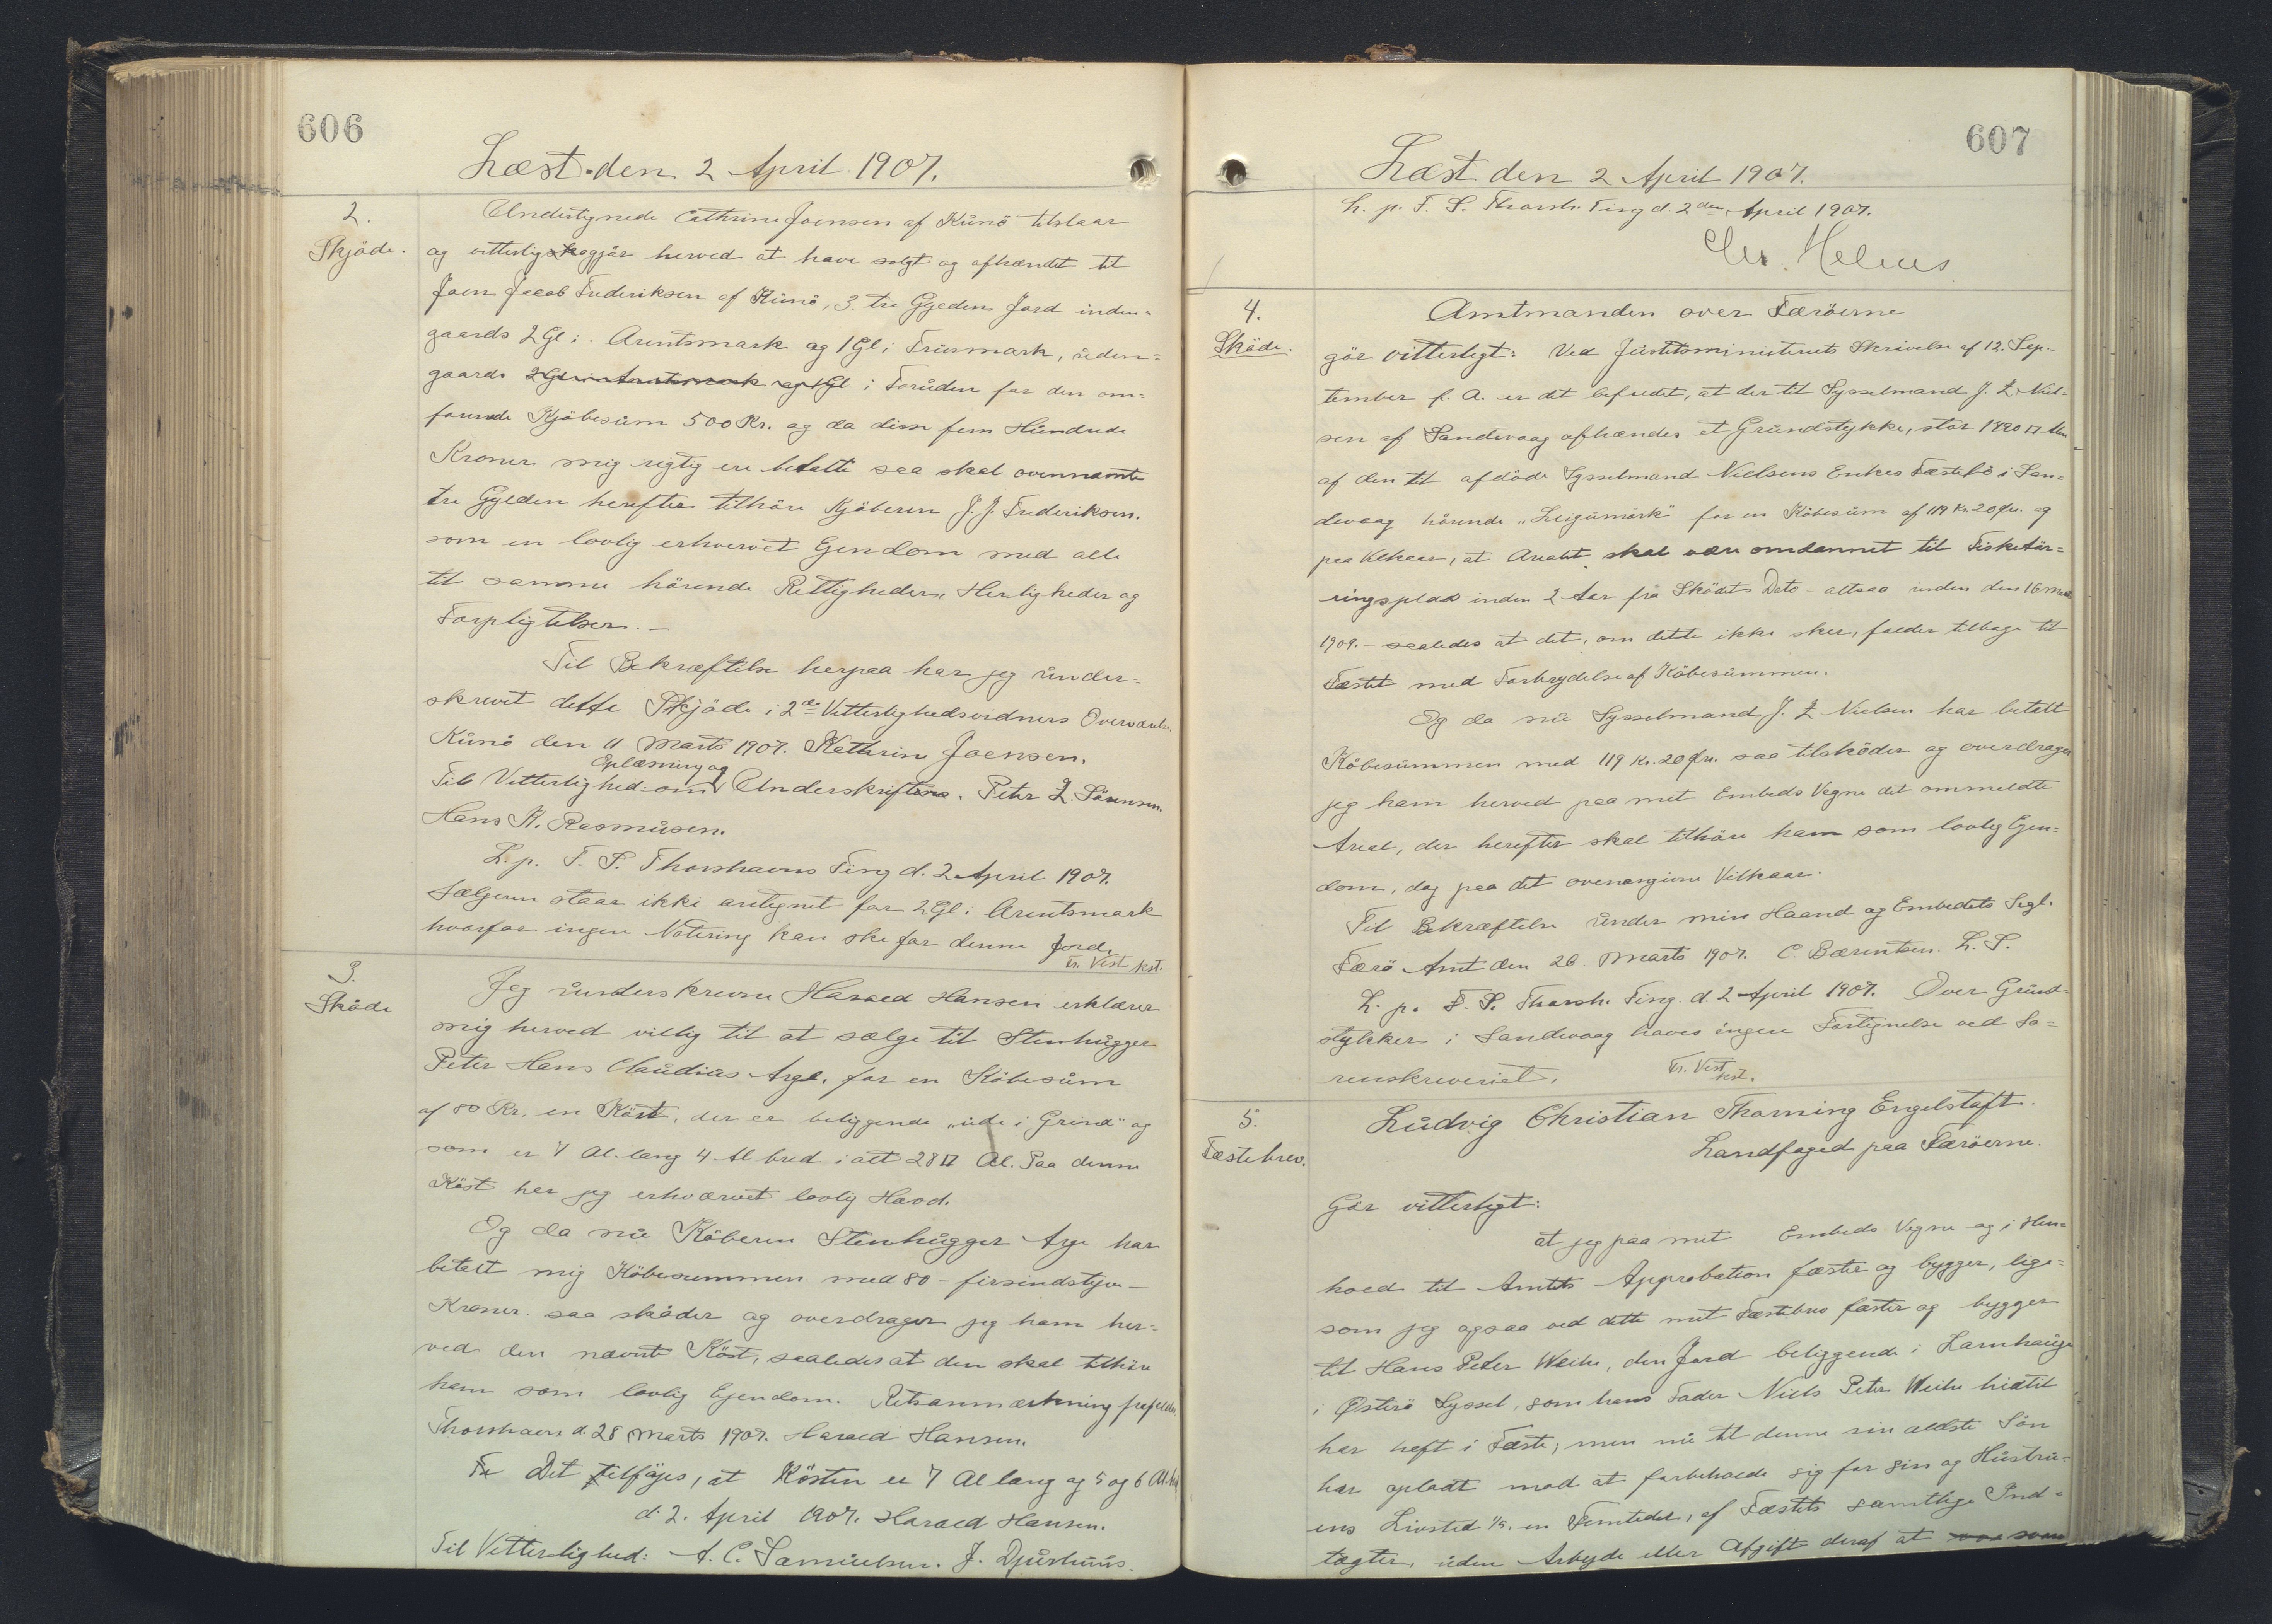 606
Læst den 2 April 1907.
2.
Skjøde.
Undertegnede Cathrine Joensen af Kunö tilstaar
og vitterligogjör herved at have solgt og afhændet til
Joen Jacob Frederiksen af Kunö, 3. tre Gylden Jord inden-
gaards 2 Gl i Arentsmark og 1 Gl i Trusmark, uden=
gaards 2 Gl i Arentsmark og 1 Gl i Foruden for den om-
forende Kjöbesum 500 Kr. og da disse fem Hundrede
Kroner mig rigtig ere betalte saa skal ovennamte
tre Gylden herefter tilhöre Kjöberen J. J. Frederiksen.
som en lovlig erhvervet Ejendom med alle
til samme hörende Rettigheder, Herligheder og
Forpligtelser. –
Til Bekræftelse herpaa har jeg under=
skrevet dette Skjöde i 2de Vitterlighedsvidners Overværelse.
Kunö den 11 Marts 1907. Kathrin Joensen.
Oplæsning og
Til Vitterlighed om Underskriften. Peter L. Sörensen.
Hans K. Rasmusen.
L. p. F. S. Thorshavns Ting d. 2 April 1907.
Sælgeren staar ikke antegnet for 2 Gl. i Arentsmark
hvorfor ingen Notering kan ske for denne Jord.
Tr. Vist kst.
3.
Sköde
Jeg underskrevne Harald Hansen erklærer
mig herved villig til at sælge til Stenhugger
Peter Hans Claudius Arge, for en Köbesum
af 80 Kr. en Köst, der er beliggende „ude i Grind" og
som er 7 Al. lang 4 Al bred i alt 28 □ Al. Paa denne
Köst har jeg erhvervet lovlig Havd.
Og da nu Köberen Stenhugger Arge har
betalt mig Köbesummen med 80 – firsindstyve –
Kroner saa sköder og overdrager jeg ham her=
ved den nævnte Köst, saaledes at den skal tilhöre
ham som lovlig Ejendom. Retsanmærkning frafaldes
Thorshavn d. 28 Marts 1907. Harald Hansen.
Det tilföjes, at Kösten er 7 Al lang og 5 og 6 Al. bred
d. 2. April 1907. Harald Hansen.
Til Vitterlighed: A. C. Samuelsen. J. Djurhuus.
607
Læst den 2 April 1907.
L. p. F. S. Thorsh. Ting d. 2den April 1907.
4.
Sköde.
Amtmanden over Færöerne
gör vitterligt: Ved Justitsministeriets Skrivelse af 12. Sep-
tember f. A. er det befundet, at der til Sysselmand J. L. Niel-
sen af Sandevaag afhændes et Grundstykke, stor 1820 □ Alen
af den til afdöde Sysselmand Nielsens Enkes Fæstebö i San=
devaag hörende „Leigumörk" for en Köbesum af 119 Kr. 20 Øre. og
paa Vilkaar, at Arealet skal være omdannet til Fisketör=
ringsplads inden 2 Aar fra Sködets Dato – altsaa inden den 16 Marts
1909. – saaledes at det, om dette ikke sker, falder tilbage til
Fæstet med Forbrydelse af Köbesummen.
Og da nu Sysselmand J. L. Nielsen har betalt
Köbesummen med 119 Kr. 20 Øre. saa tilsköder og overdrager
jeg ham herved paa mit Embeds Vegne det ommeldte
Areal, der herefter skal tilhöre ham som lovlig Ejen=
dom, dog paa det ovenangivne Vilkaar.
Til Bekræftelse under min Haand og Embedets Segl.
Færö Amt den 26 Marts 1907. C. Bærentsen. L. S.
L. p. F. S. Thorsh. Ting. d. 2 April 1907. Over Grund-
stykker i Sandevaag haves ingen Fortegnelse ved So=
renskriveriet.
Tr. Vist kst.
5.
Fæstebrev.
Ludvig Christian Thorning Engelstoft.
Landfoged paa Færöerne.
Gör vitterligt:
at jeg paa mit Embeds Vegne og i Hen=
hold til Amtets Approbation fæster og bygger, lige=
som jeg ogsaa ved dette mit Fæstebrev fæster og bygger
til Hans Peter Weihe, den Jord beliggende i Lamhauge
i Østerö Syssel, som hans Fader Niels Peter Weihe hidtil
har haft i Fæste, men nu til denne sin ældste Sön
har opladt mod at forbeholde sig for sin og Hustru=
ens Livstid 1/5. en Femtedel, af Fæstets samtlige Ind=
tægter, uden Arbejde eller Afgift deraf at